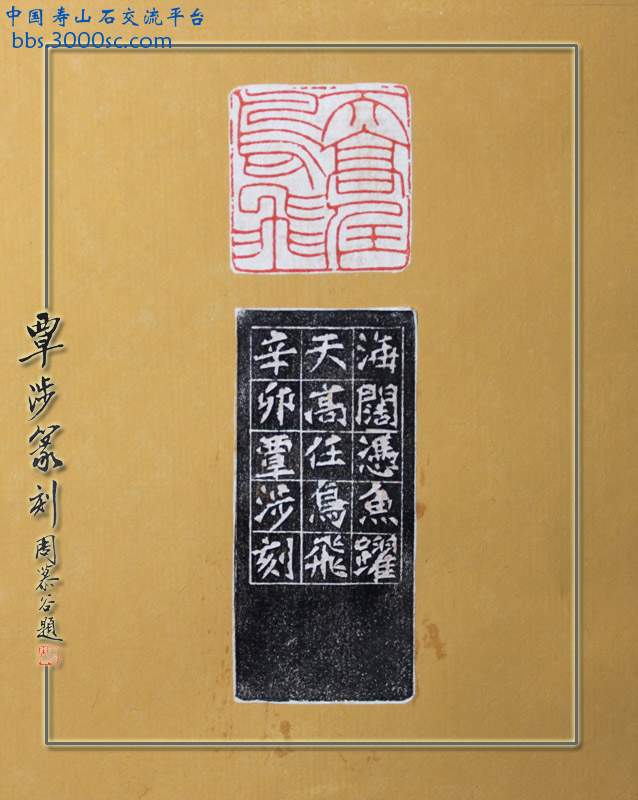 中国寿山石交流平台
bbs.3000sc.com
天高任
鳥飛
海闊憑魚躍
天高任鳥飛
辛卯覃涉刻
覃涉篆刻
周慕谷題